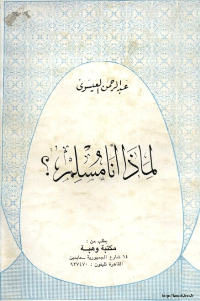 عبد الرحمن العيسوى
لماذا أنا مسلم؟
يطلب من :
مكتبة وهبة
١٤ شارع الجمهورية ـ عابدين
القاهرة تليفون : ٩٣٧٤٧٠